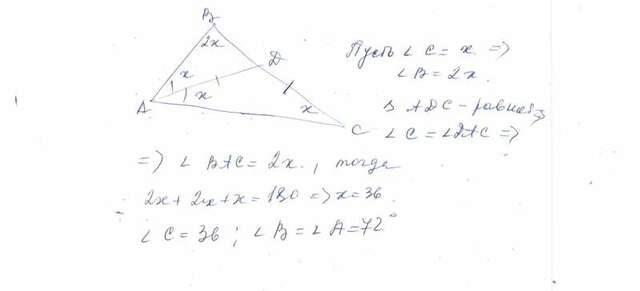 B
2x
D
x
x
x
A
C
Пусть ∠ C = x =>
∠B = 2x.
Δ ADC - равноб =>
∠ C = ∠DAC =>
=> ∠ BAC = 2x., тогда
2x + 2x + x = 180 => x = 36.
∠ C = 36 ; ∠ B = ∠ A = 72°